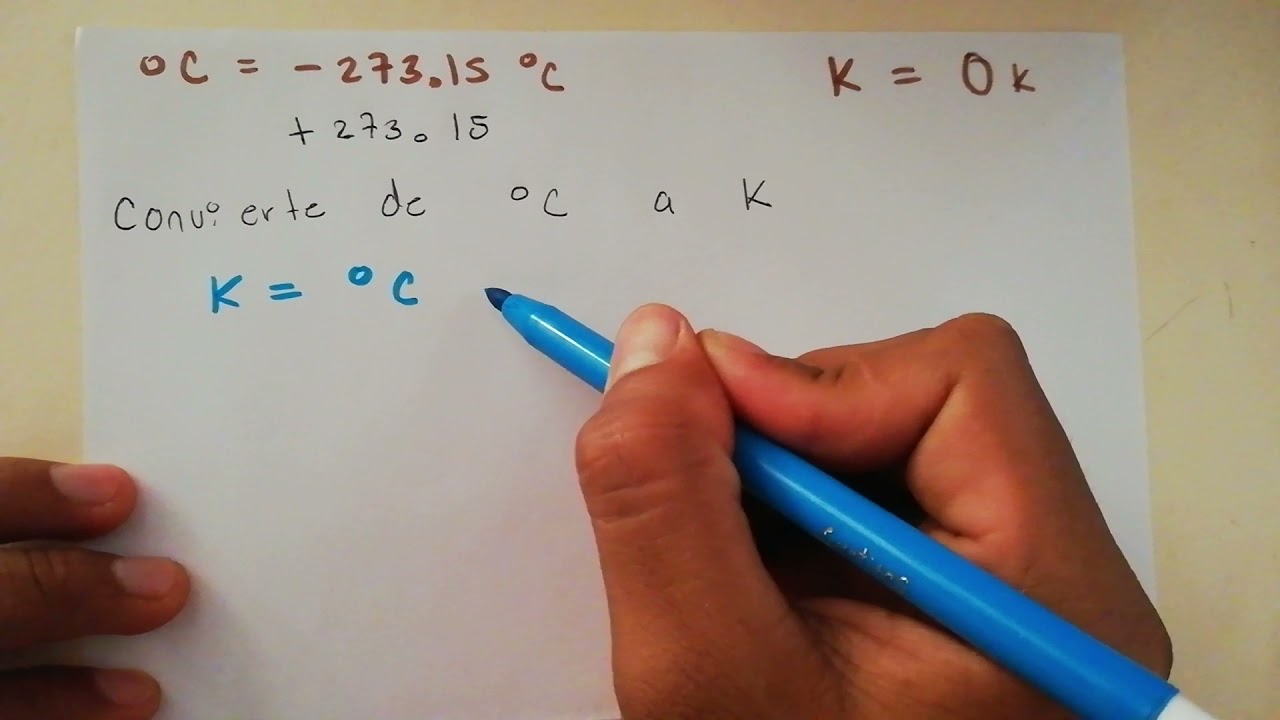 °C = -273.15 °C K = 0 K
+ 273.15
Convierte de °C a K
K = °C